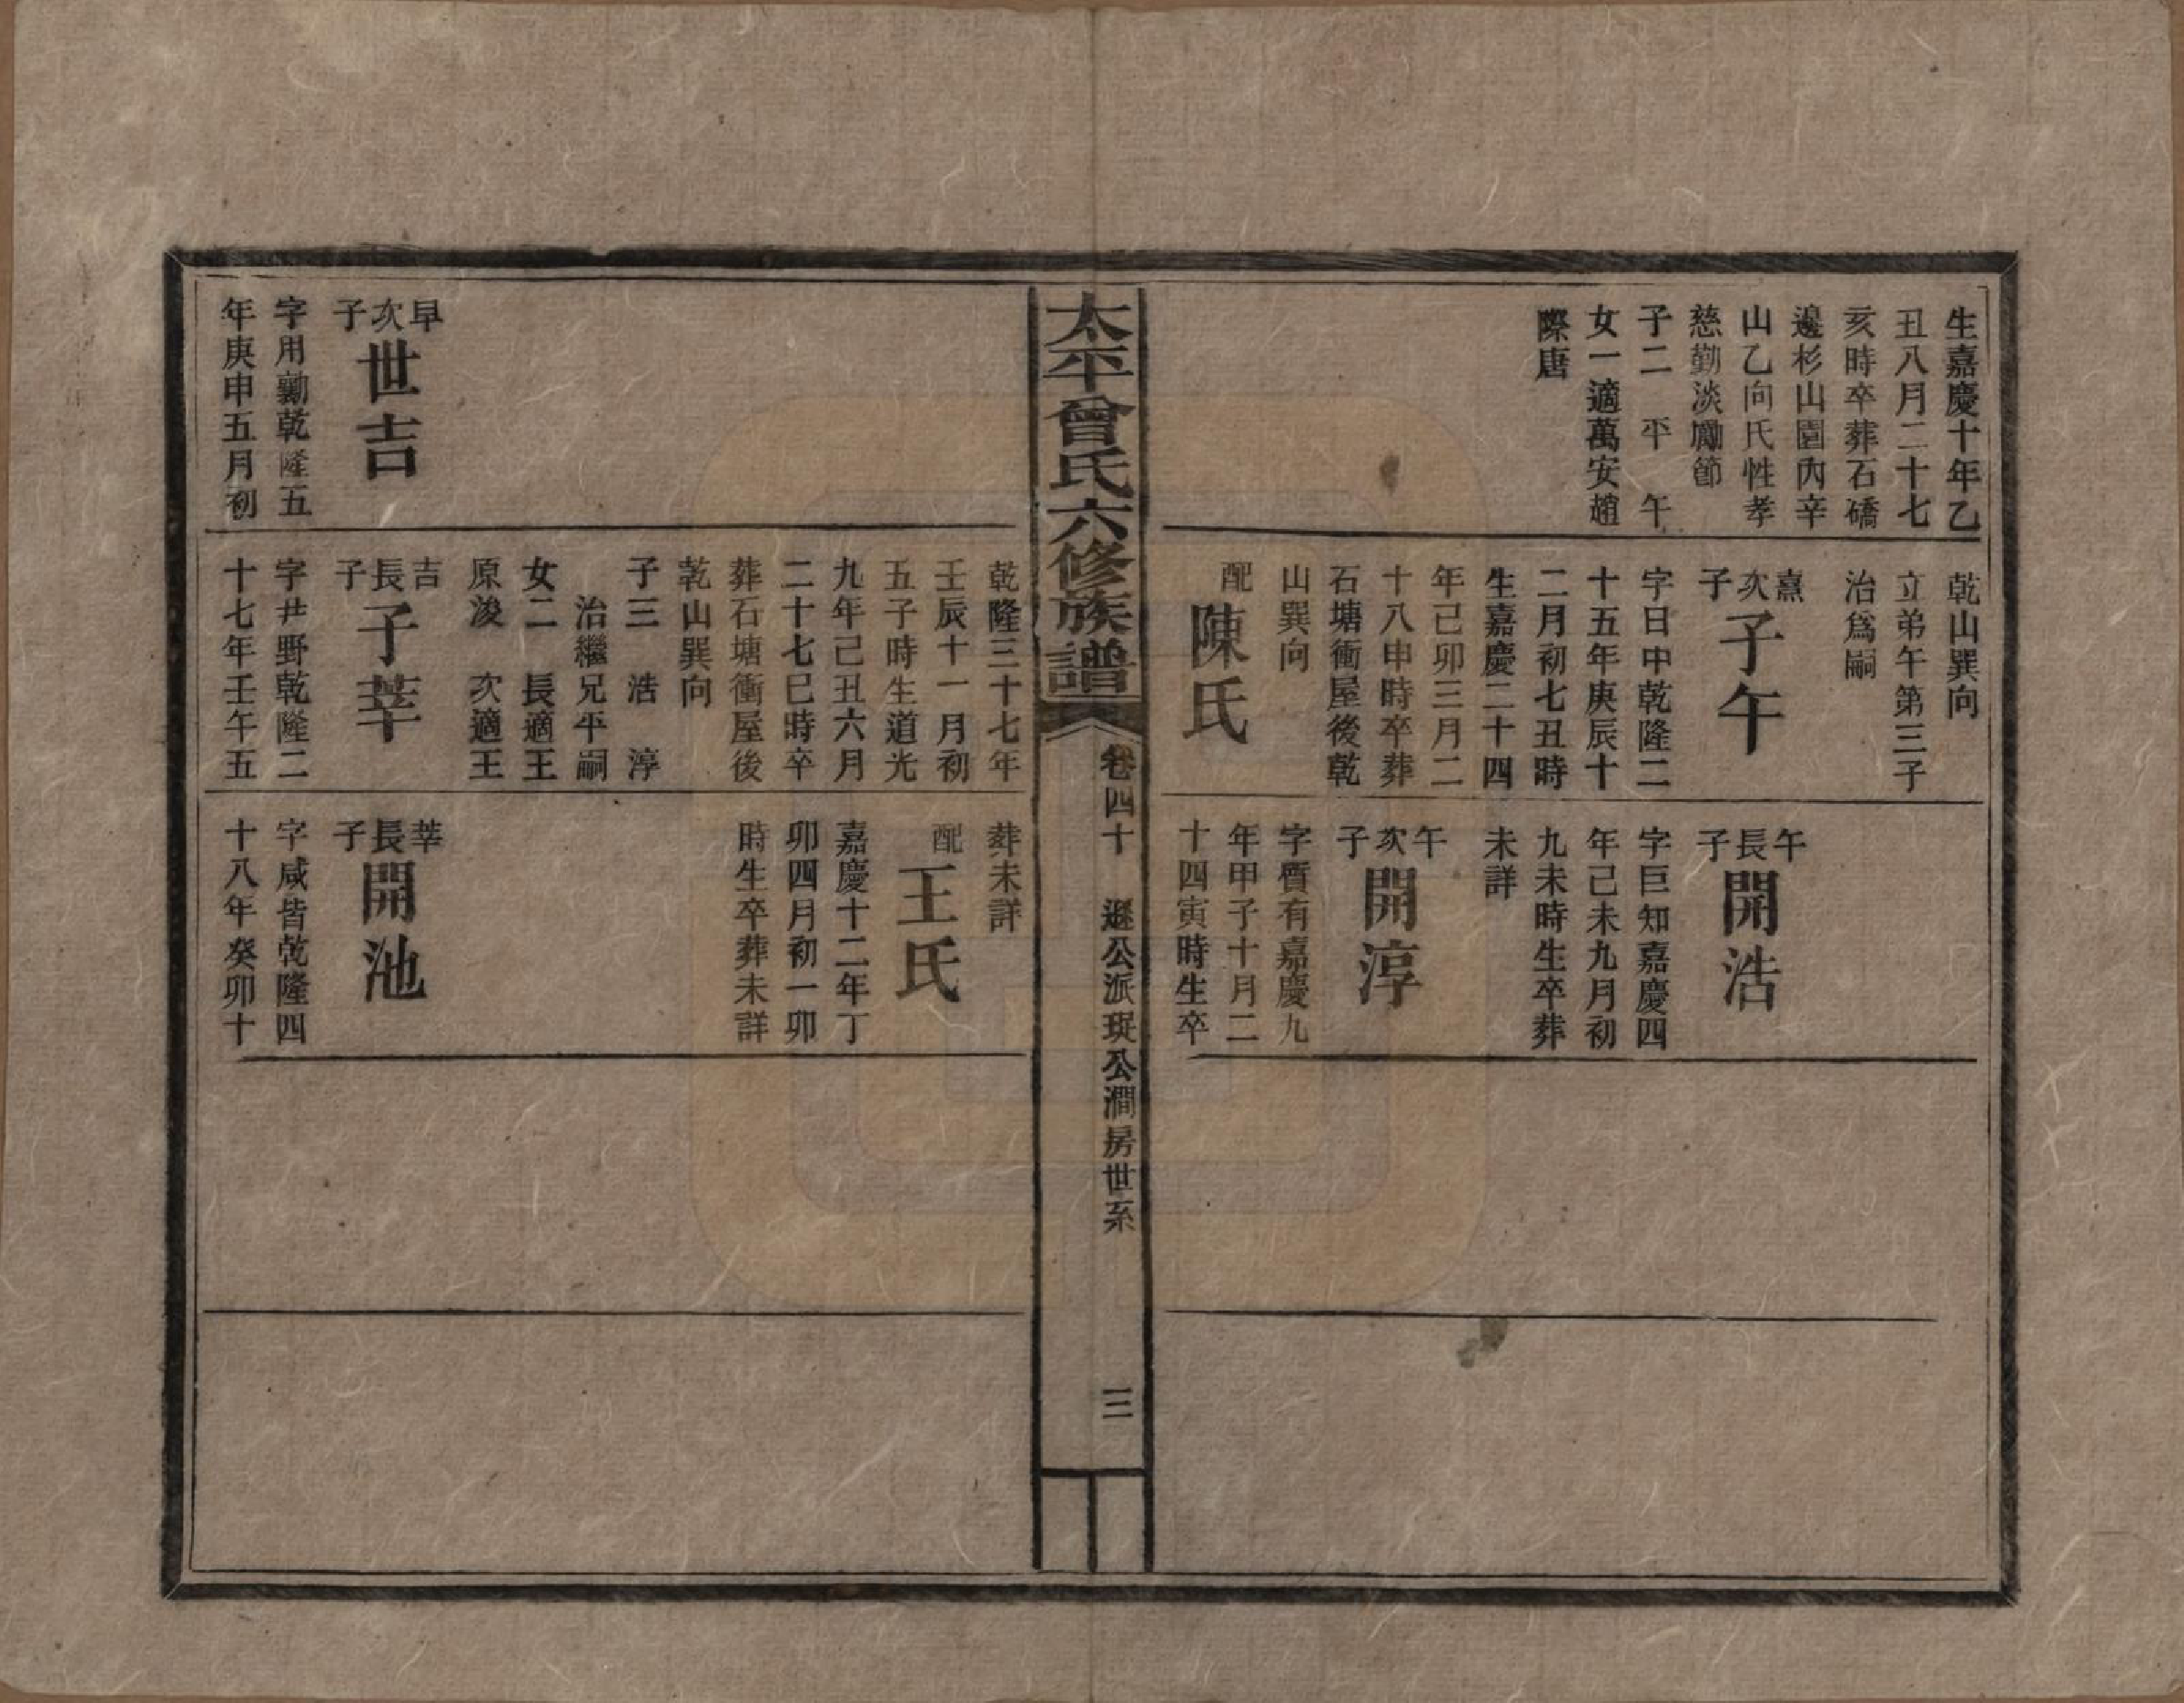 生嘉慶十年乙
丑八月二十七
亥時卒葬石礄
邊杉山園內辛
山乙向氏性孝
慈勤淡勵節
子二　平　午
女一適萬安趙
際唐
乾山巽向
立弟午第三子
治爲嗣
熹次子　子午
字日中乾隆二
十五年庚辰十
二月初七丑時
生嘉慶二十四
年己卯三月二
十八申時卒葬
石塘衝屋後乾
山巽向
配　陳氏
午長子　開浩
字巨知嘉慶四
年己未九月初
九未時生卒葬
未詳
午次子　開淳
字賓有嘉慶九
年甲子十月二
十四寅時生卒
太平曾氏六修族譜
卷四十　遜公派珽公澗房世系
三
早次子　世吉
字用勷乾隆五
年庚申五月初
乾隆三十七年
壬辰十一月初
五子時生道光
九年己丑六月
二十七巳時卒
葬石塘衝屋後
乾山巽向
子三　浩　淳
治繼兄平嗣
女二　長適王
原浚　次適王
吉長子　子莘
字井野乾隆二
十七年壬午五
葬未詳
配　王氏
嘉慶十二年丁
卯四月初一卯
時生卒葬未詳
莘長子　開池
字咸皆乾隆四
十八年癸卯十